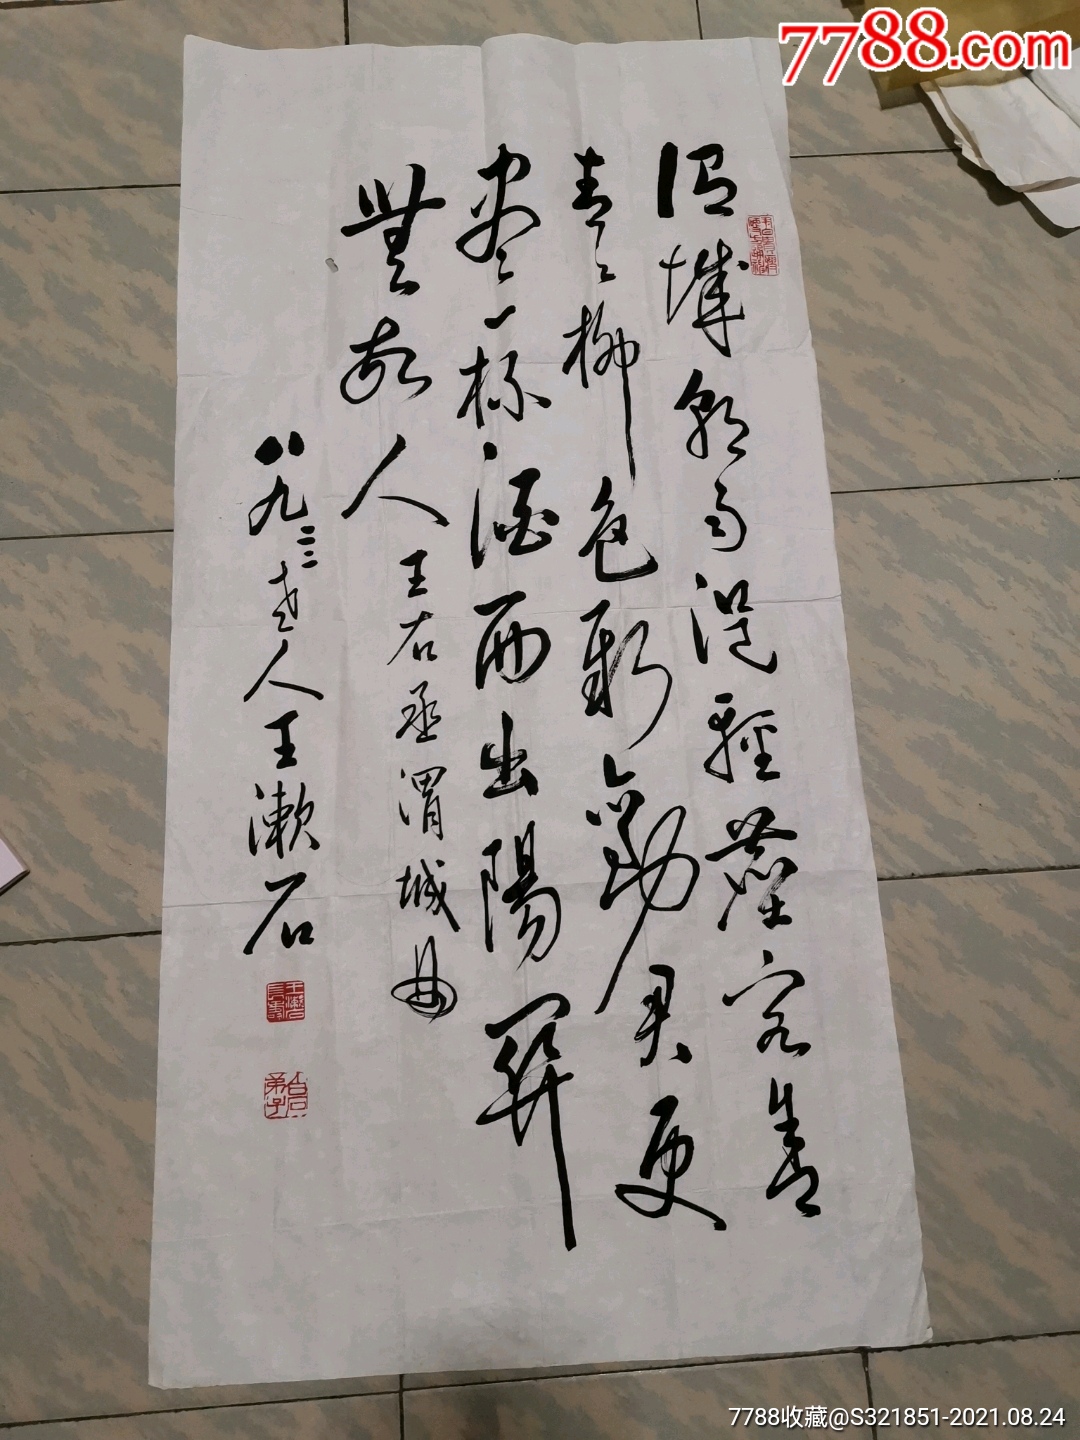 7788.com
渭城朝雨浥輕塵客舍
青々柳色新勸君更
盡一杯酒西出陽關
無故人
王右丞渭城曲
八九老人王漱石
白石弟子
7788收藏@S321851-2021.08.24